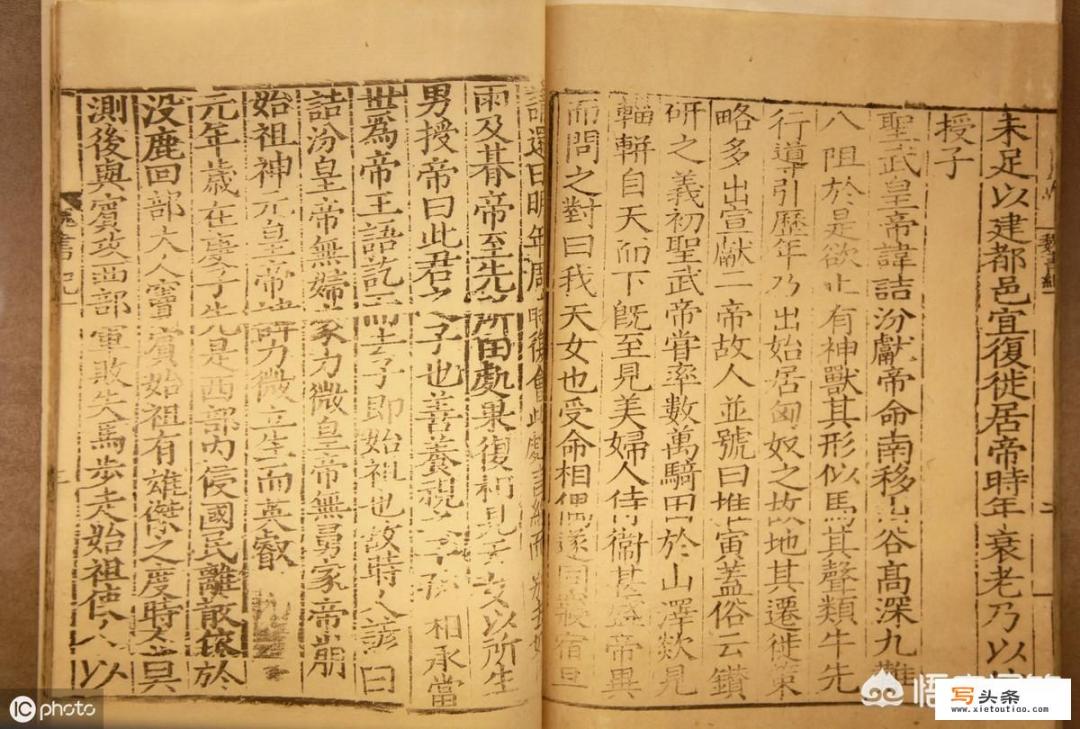 未足以建都邑宜復徙居帝時年衰老乃以
授子
聖武皇帝諱詰汾獻帝命南移山谷高深九難
八阻於是欲止有神獸其形似馬其聲類牛先
行導引歷年乃出始居匈奴之故地其遷徙策
略多出宣獻二帝故人並號曰推寅蓋俗云鑽
研之義初聖武帝嘗率數萬騎田於山澤欻見
輜軿自天而下既至見美婦人侍衛甚盛帝異
而問之對曰我天女也受命相偶遂同寢宿旦
請還曰明年周時復會此處言終而別
雨及朞帝至先所田處果復相見天女以所生
男授帝曰此君之子也善養視之子孫相承當
世為帝王語訖而去子即始祖也故時人諺曰
詰汾皇帝無婦家力微皇帝無舅家帝崩
始祖神元皇帝諱力微立生而英叡
元年歲在庚子先是西部內侵國民離散依於
没鹿回部大人竇賓始祖有雄傑之度時人莫
測後與賓攻西部軍敗失馬步走始祖使人以
魏書紀一
iC photo
写头条
www.xietoutiao.com